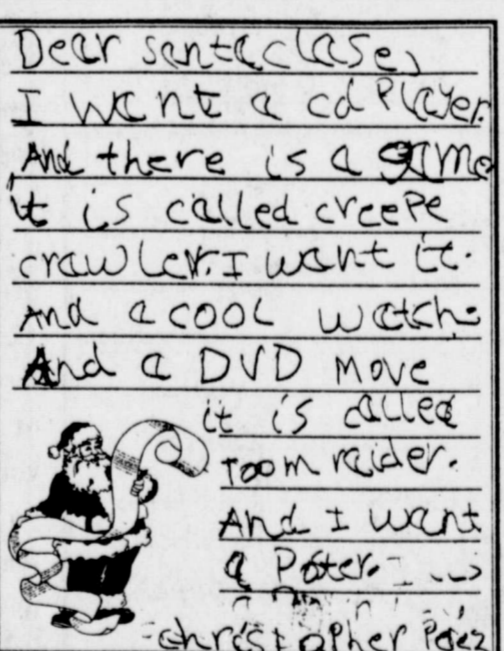 Dear santaclase,
I want a cd Player.
And there is a game
it is called creepe
crawler. I want it.
And a cool watch.
And a DVD move
it is called
room raider.
And I want
a Poter.
christopher Perez